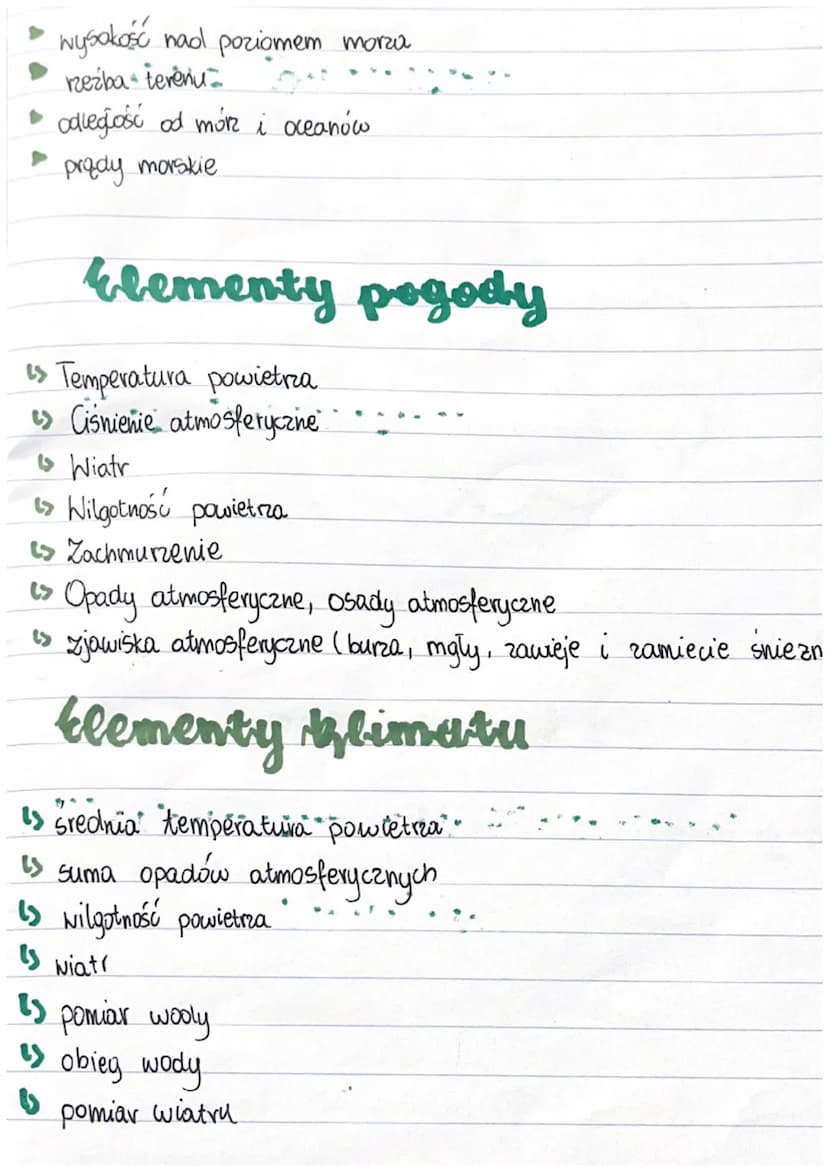 wysokość nad poziomem morza
rzeźba terenu
odległość od mórz i oceanów
prądy morskie
Elementy pogody
Temperatura powietrza
Ciśnienie atmosferyczne
Wiatr
Wilgotność powietrza
Zachmurzenie
Opady atmosferyczne, osady atmosferyczne
zjawiska atmosferyczne (burza, mgły, zawieje i zamiecie śniezn
Elementy klimatu
średnia temperatura powietrza
suma opadów atmosferycznych
wilgotność powietrza
wiatr
pomiar wody
obieg wody
pomiar wiatru